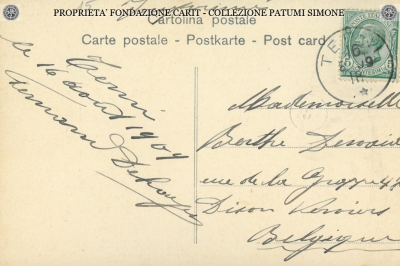 PROPRIETA' FONDAZIONE CARIT - COLLEZIONE PATUMI SIMONE
Cartolina postale
Carte postale - Postkarte - Post card
TE
Terni
le 16 août 1909
Fernand
Mademoiselle
Berthe
rue de la Grappe 47
Dison Verviers
Belgique